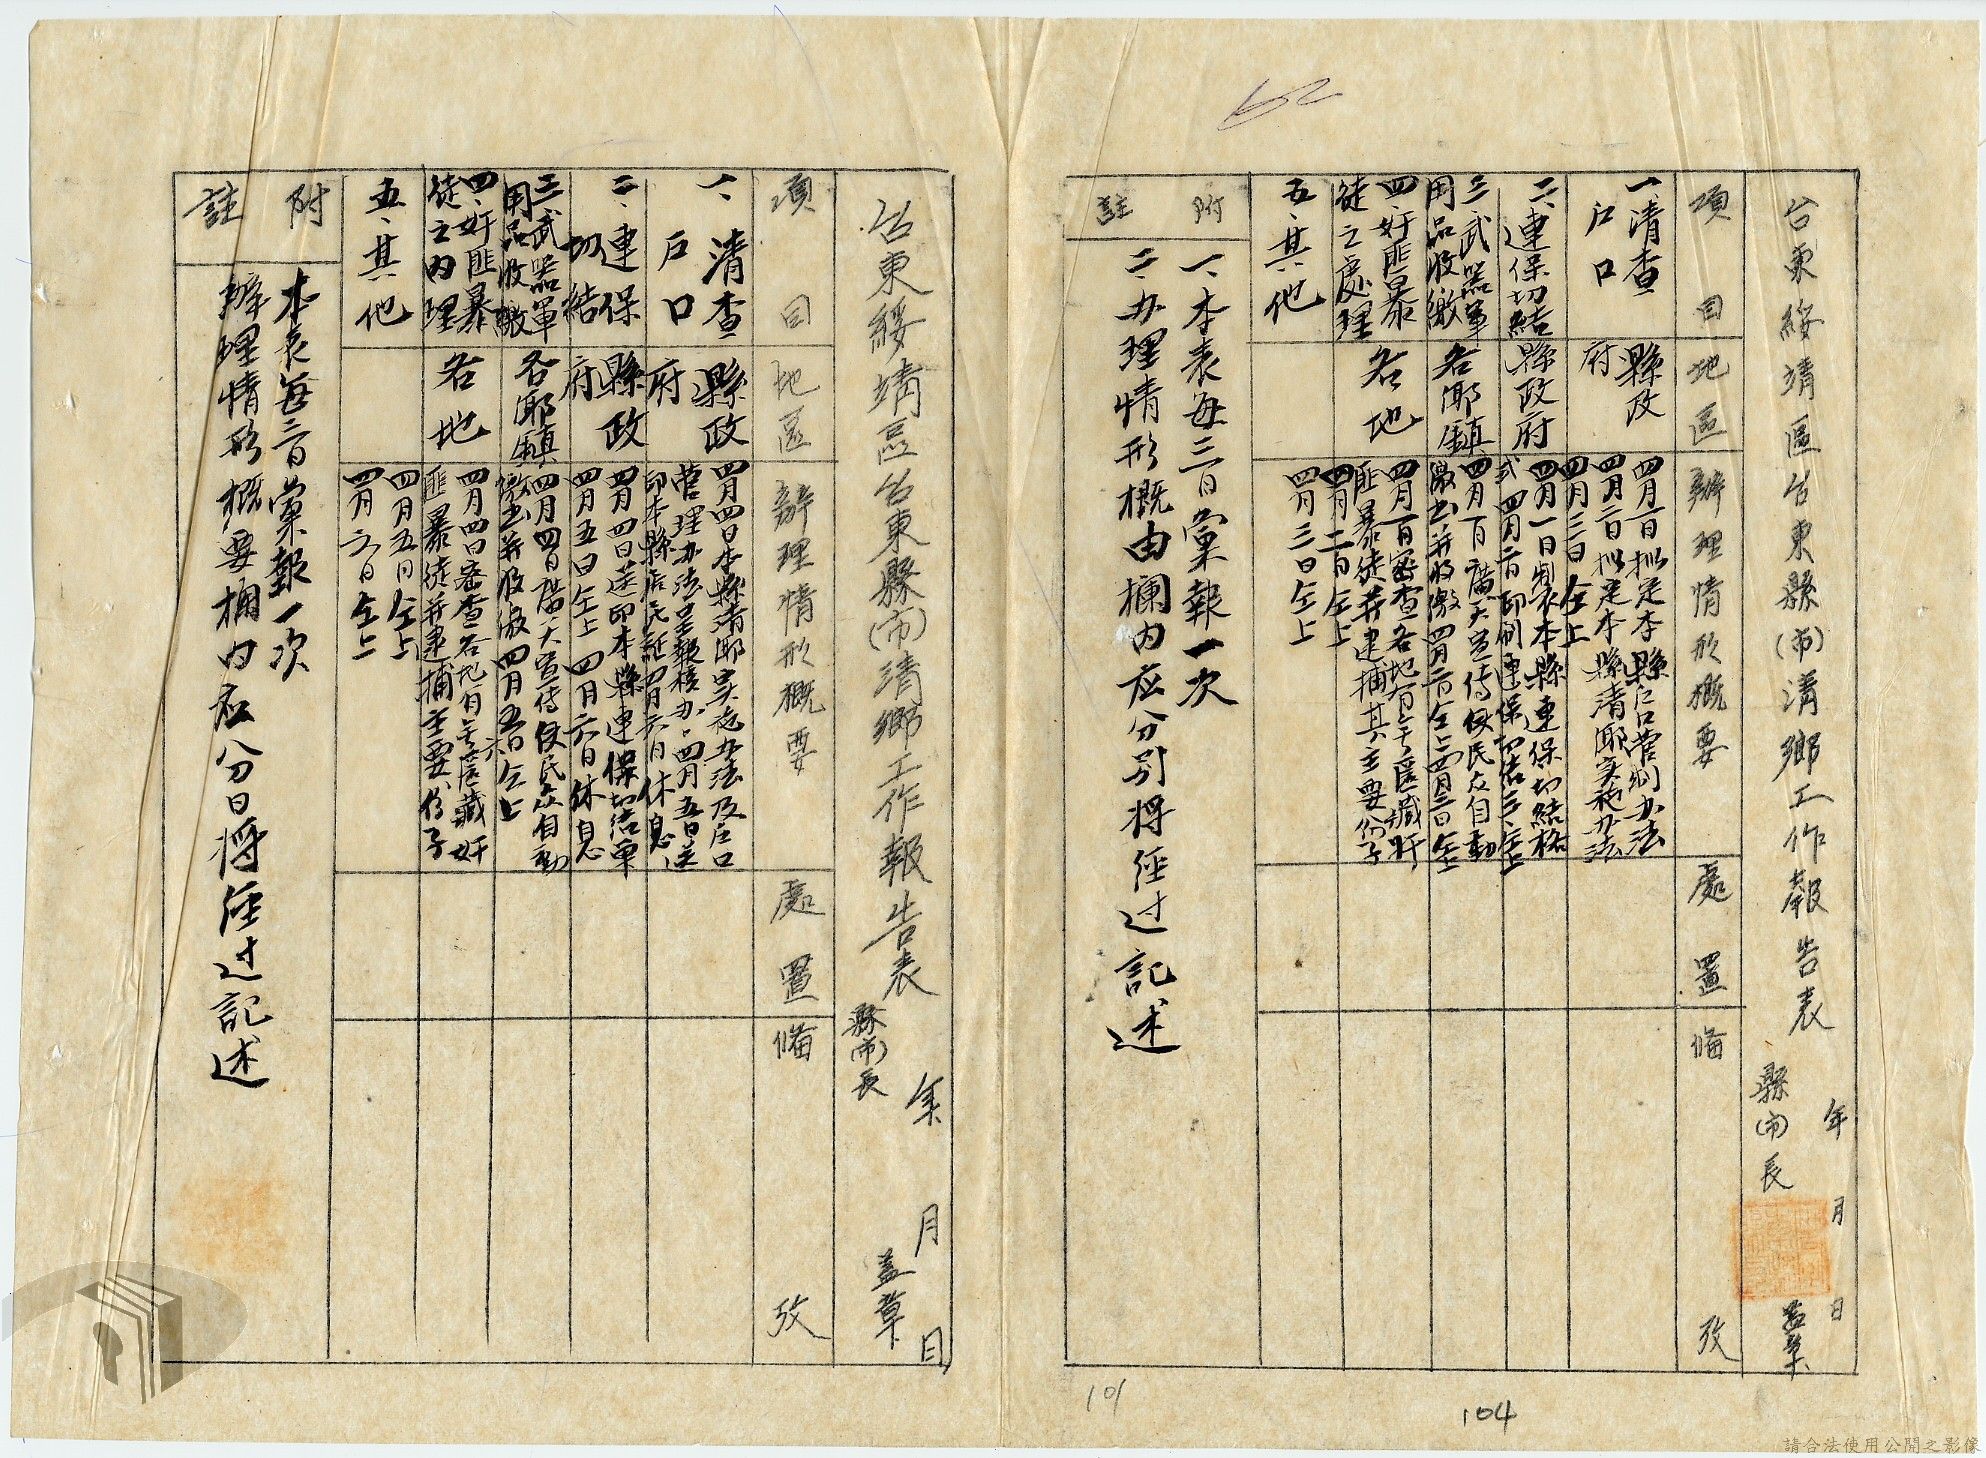 台東綏靖區台東縣(市)清鄉工作報告表
年 月 日
縣(市)長 蓋章
項目
地區
辦理情形概要
處置
備攷
一、清查
戶口
縣政
府
四月一日拟定本縣戶口管制办法
四月二日拟定本縣清鄉实施办法
四月三日仝上
二、連保切結
縣政府
四月一日製表本縣連保切結格
式 四月二日印刷連保切结三、仝上
三武器軍
用品收繳
各鄉鎮
四月一日擴大宣传使民众自動
繳出并收繳四月二日仝上四月三日仝上
四、奸匪暴
徒之處理
各地
四月一日密查各地有無匿藏奸
匪暴徒并逮捕其主要份子
四月二日仝上
四月三日仝上
五、其他
附註
一、本表每三日彙報一次
二、办理情形概由欄内应分别将经过記述
台東綏靖區台東縣(市)清鄉工作報告表
年 月 日
縣(市)長 蓋章
項目
地區
辦理情形概要
處置
備攷
一、清查
戶口
縣政
府
四月四日本縣清鄉实施办法及戶口
管理办法呈報核办、四月五日送
印本縣居民証四月六日休息
二、連保
切結
縣政
府
四月四日送印本縣連保切结单
四月五日仝上 四月六日休息
三、武器軍
用品收繳
各鄉鎮
四月四日擴大宣传使民众自動
繳出并收缴四月五日仝上
四、奸匪暴
徒之内理
各地
四月四日密查各地有無匿藏奸
匪暴徒并逮捕主要份子
四月五日仝上
四月六日仝上
五、其他
附註
本表每三日彙報一次
辦理情形概要欄内应分日将经过記述
101
104
請合法使用公開之影像